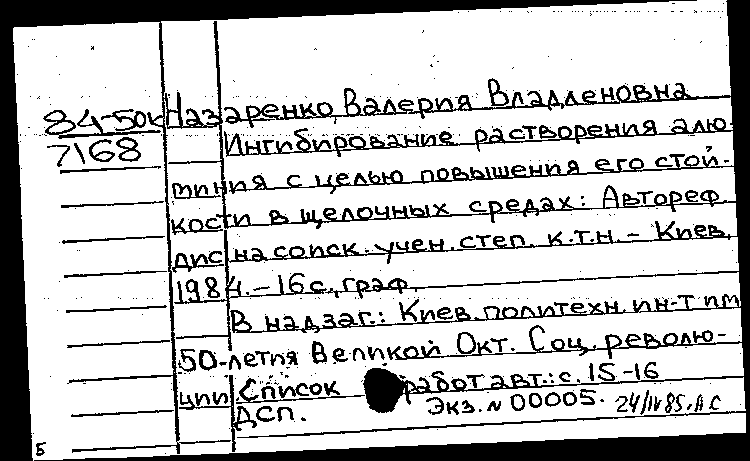 84-50к Назаренко, Валерия Владленовна
7168 Ингибирование растворения алю-
миния с целью повышения его стой-
кости в щелочных средах: Автореф.
дис на соиск. учен. степ. к.т.н. – Киев,
1984. – 16 с., граф.
В надзаг.: Киев. политехн. ин-т им
50-летия Великой Окт. Соц. револю-
ции Список работ авт.: с. 15-16
ДСП. Экз. N 00005. 24/IV 85. А С
5